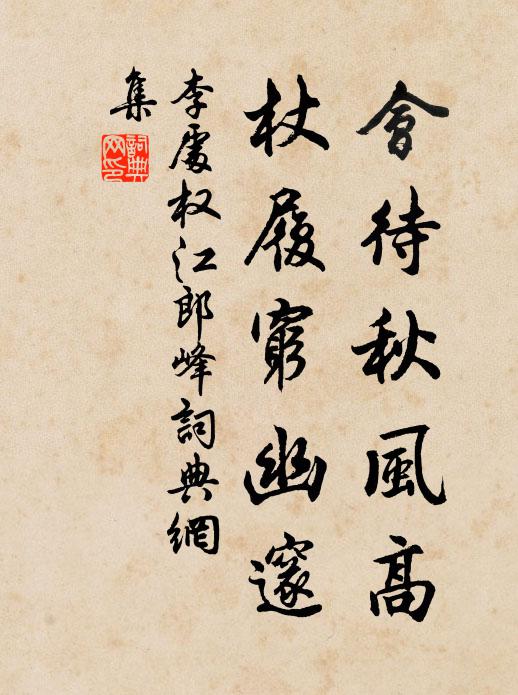 會待秋風高
杖履窮幽邃
李處权江郎峰詞典網
集
詞典網印